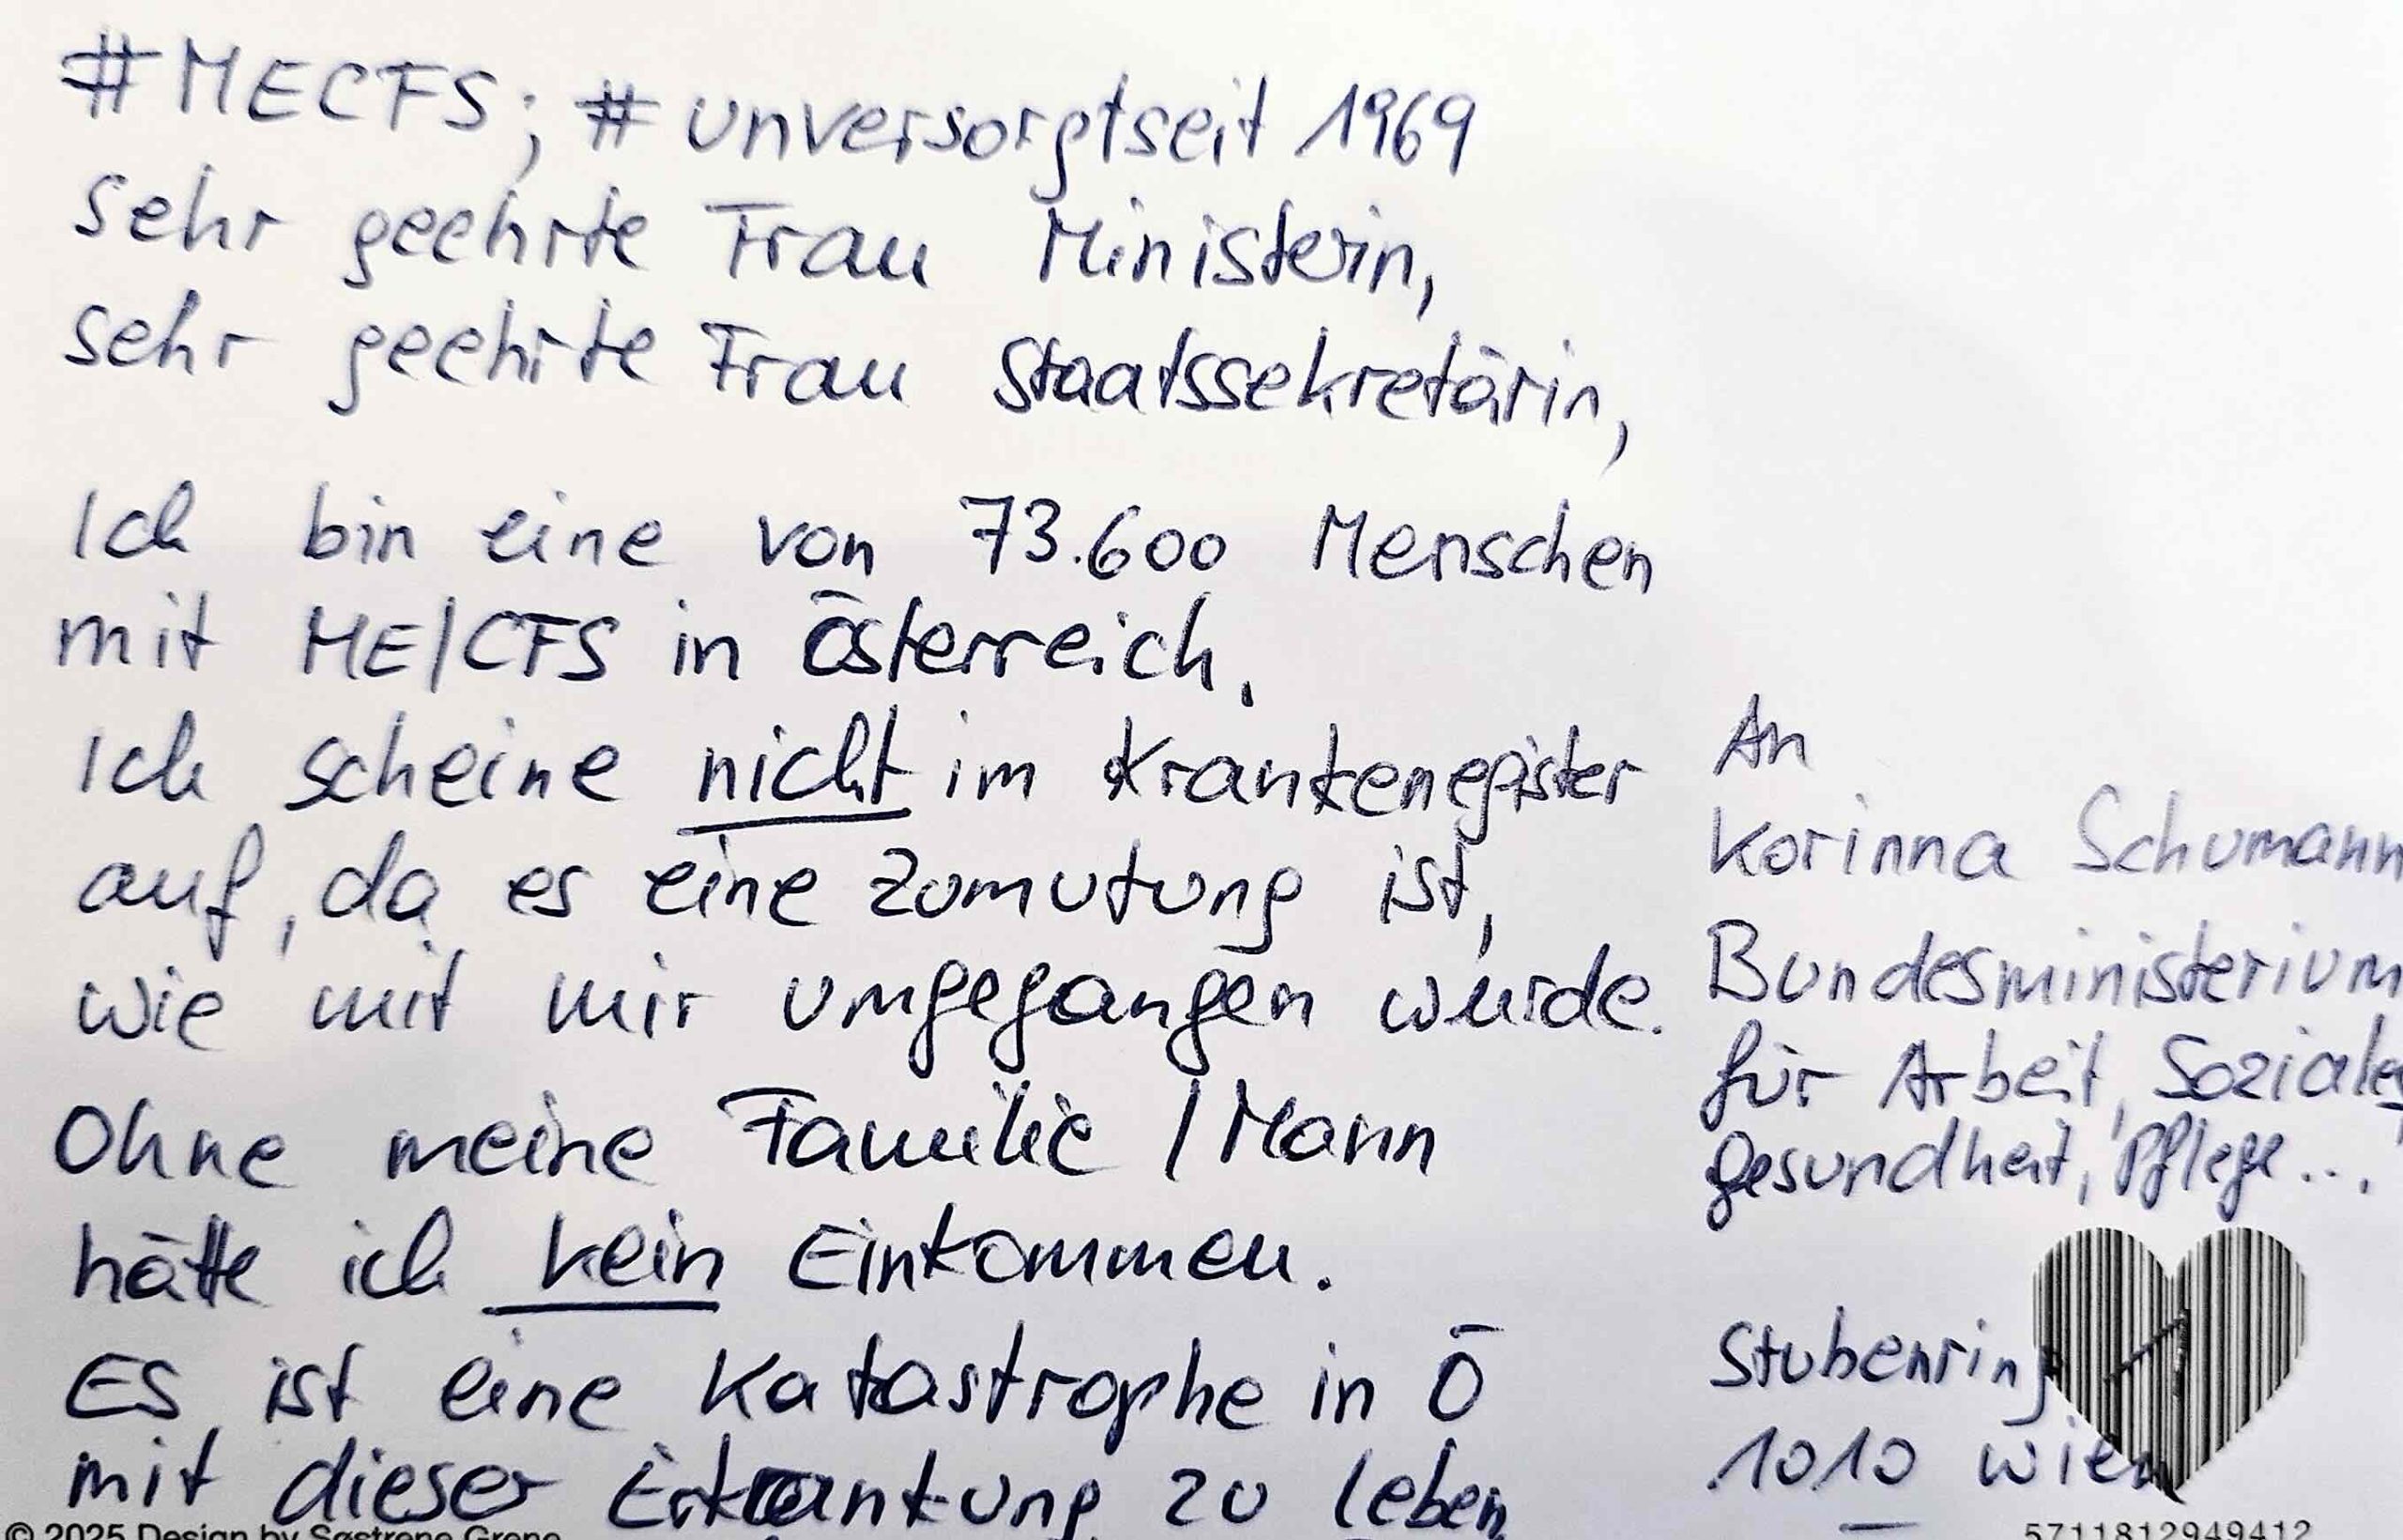 #MECFS; #unversorgtseit 1969
Sehr geehrte Frau Ministerin,
sehr geehrte Frau Staatssekretärin,
Ich bin eine von 73.600 Menschen
mit ME/CFS in Österreich.
Ich scheine nicht im Krankenegister
auf, da es eine Zumutung ist,
wie mit mir umgegangen wurde.
Ohne meine Familie / Mann
hätte ich kein Einkommen.
Es ist eine Katastrophe in Ö
mit dieser Erkrankung zu leben
© 2025 Design by Søstrene Grene
An
Korinna Schumann
Bundesministerium
für Arbeit, Soziales,
Gesundheit, Pflege...
Stubenring 1
1010 Wien
5711812949412